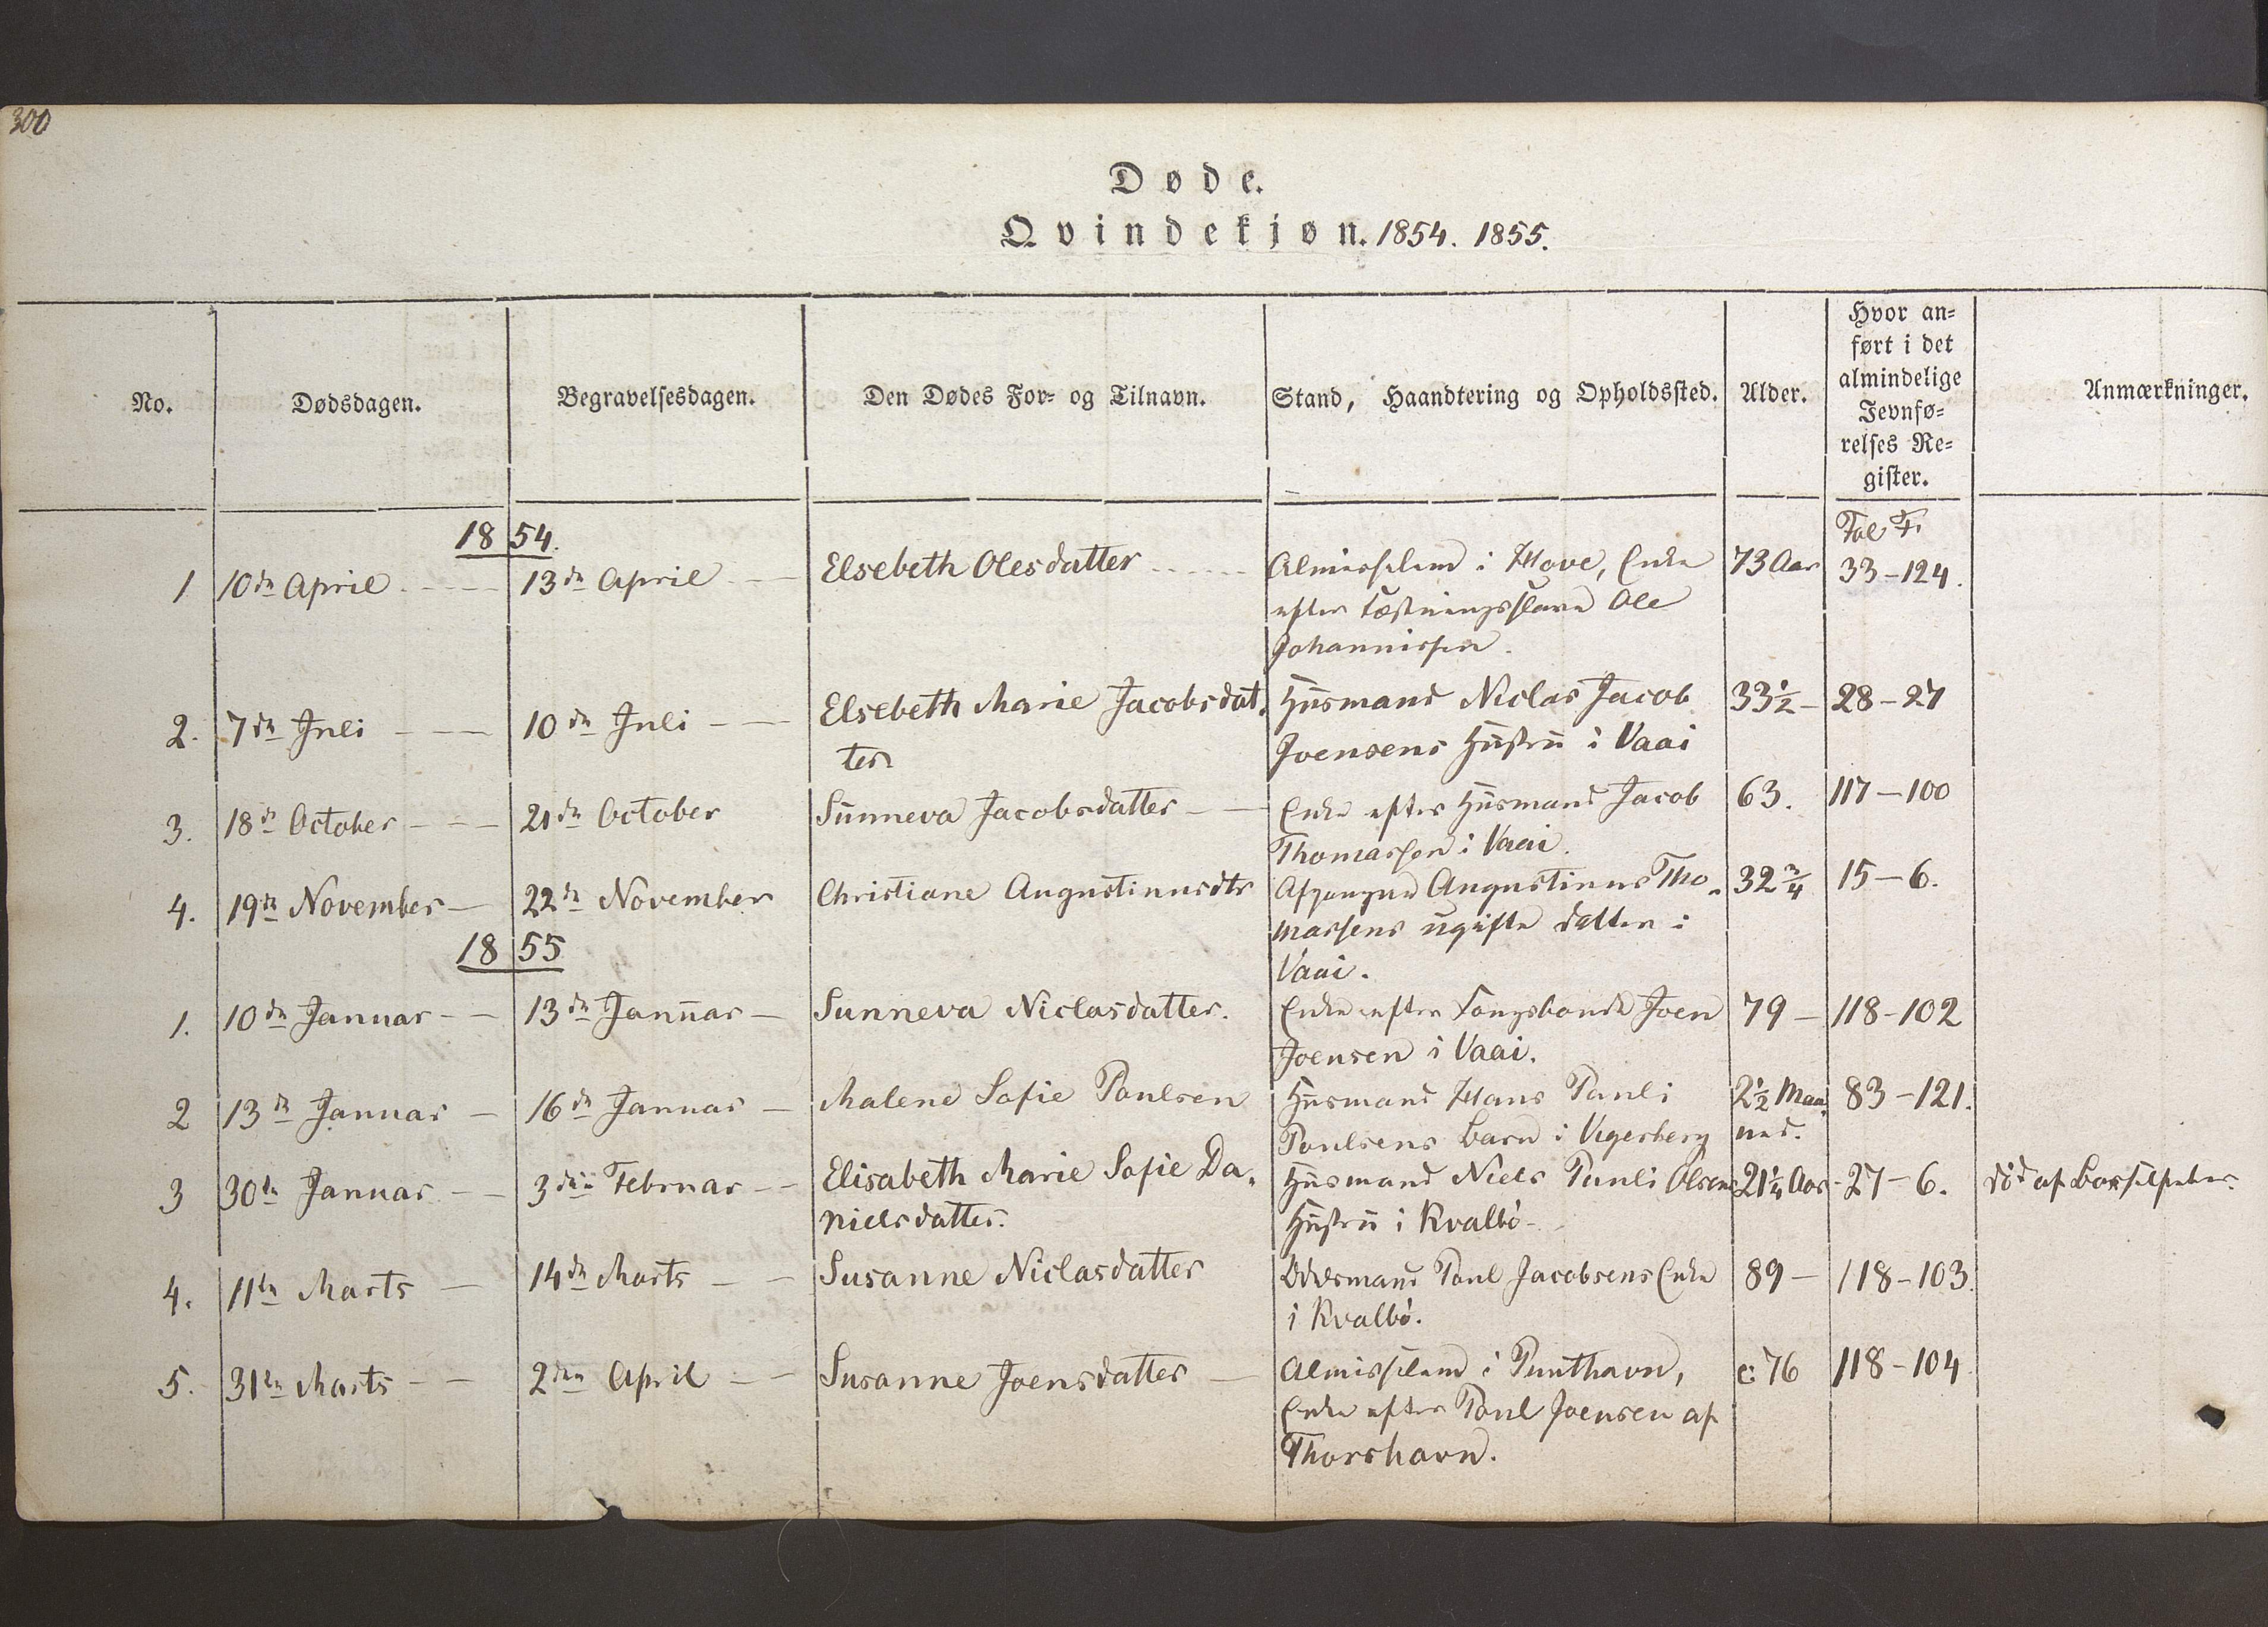 300
Døde.
Qvindekjøn. 1854. 1855.
No.
Dødsdagen.
Begravelsesdagen.
Den Dødes For- og Tilnavn.
Stand, Haandtering og Opholdssted.
Alder.
Hvor an-
ført i det
almindelige
Jevnfø-
relses Re-
gister.
Anmærkninger.
1854.
Fol
1 10de April 13de April Elsebeth Olesdatter Almisselem i Hove, Enke 73 Aar 33-124.
efter Fæstningsslave Ole
Johannissen.
2. 7de Juli 10de Juli Elsebeth Marie Jacobsdat- Huusmand Niclas Jacob 33½ 28-27
ter Joensens Hustru i Vaai
3. 18de October 21de October Sunneva Jacobsdatter Enke efter Huusmand Jacob 63. 117-100
Thomassen i Vaai.
4. 19de November 22de November Christiane Augustinusdtr Afgangne Augustinus Tho- 32¾ 15-6.
massens ugifte datter i
Vaai.
1855
1. 10de Januar 13de Januar Sunneva Niclasdatter. Enke efter Kongsbonde Joen 79 118-102
Joensen i Vaai.
2 13de Januar 16de Januar Malene Sofie Poulsen Huusmand Hans Pauli 2½ Maa- 83-121.
Poulsens Barn i Vigerberg ned.
3 30te Januar 3die Februar Elisabeth Marie Sofie Da- Huusmand Niels Pauli Olsens 21¼ Aar 27-6. død af Barselfeber.
nielsdatter. Hustru i Kvalbø
4. 11te Marts 14de Marts Susanne Niclasdatter Poul Jacobsens Enke 89 118-103.
i Kvalbø.
5. 31te Marts 2den April Susanne Joensdatter Almisselem i Punthavn, c: 76 118-104
Enke efter Poul Joensen af
Thorshavn.